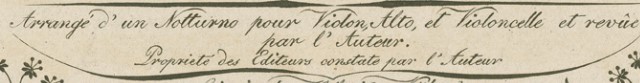 Arrangé d'un Notturno pour Violon, Alto, et Violoncelle et revûe
par l'Auteur.
Propriété des Editeurs constaté par l'Auteur